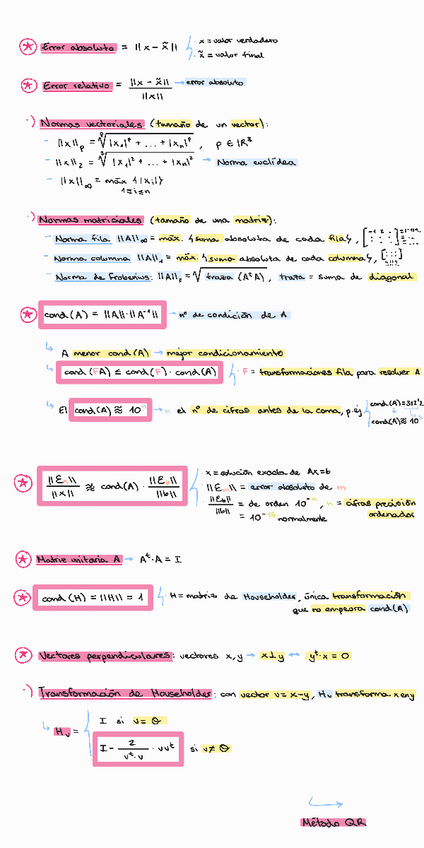 * Error absoluto = ||x - x̃|| · x = valor verdadero
· x̃ = valor final
* Error relativo = ||x - x̃|| / ||x|| → error absoluto
·) Normas vectoriales (tamaño de un vector):
- ||x||p = ᵖ√|x₁|ᵖ + ... + |xₙ|ᵖ , p ∈ ℝ
- ||x||₂ = ²√|x₁|² + ... + |xₙ|² → Norma euclídea
- ||x||∞ = máx {|xᵢ|}
1≤i≤n
·) Normas matriciales (tamaño de una matriz):
- Norma fila ||A||∞ = máx. {suma absoluta de cada fila},
- Norma columna ||A||₁ = máx. {suma absoluta de cada columna},
- Norma de Frobenius: ||A||F = √traza (AᵗA) , traza = suma de diagonal
* cond(A) = ||A||·||A⁻¹|| → nº de condición de A
↳ A menor cond(A) → mejor condicionamiento
↳ cond(FA) ≤ cond(F)·cond(A) · F = transformaciones fila para resolver A
↳ El cond(A) ≈ 10ⁿ → n el nº de cifras antes de la coma, p.ej
cond(A) ≈ 10
* ||E|| / ||x|| ≈ cond(A) · ||E|| / ||b|| · x = solución exacta de Ax=b
· ||E|| = error absoluto de m
· ||E|| / ||b|| = de orden 10⁻ⁿ, n = cifras precisión ordenador
= 10⁻¹⁶ normalmente
* Matriz unitaria A → Aᵗ·A = I
* cond(H) = ||H|| = 1 H = matriz de Householder, única transformación
que no empeora cond(A)
* Vectores perpendiculares: vectores x,y → x⊥y ↔ yᵗ·x = 0
·) Transformación de Householder: con vector v = x-y, Hᵥ transforma x en y
↳ Hᵥ = I si v = θ
I - 2 / vᵗ·v · vvᵗ si v ≠ θ
Método QR